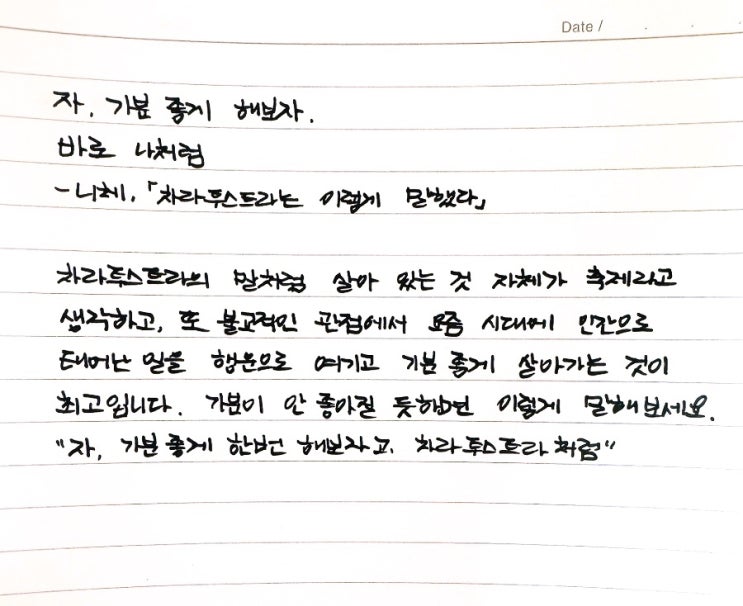 Date /
자, 기분 좋게 해보자.
바로 나처럼
- 니체, 「차라투스트라는 이렇게 말했다」
차라투스트라의 말처럼 살아 있는 것 자체가 축제라고
생각하고, 또 불교적인 관점에서 요즘 시대에 인간으로
태어난 일을 행운으로 여기고 기분 좋게 살아가는 것이
최고입니다. 기분이 안 좋아질 듯하면 이렇게 말해 보세요.
"자, 기분 좋게 한번 해보자고. 차라투스트라처럼"